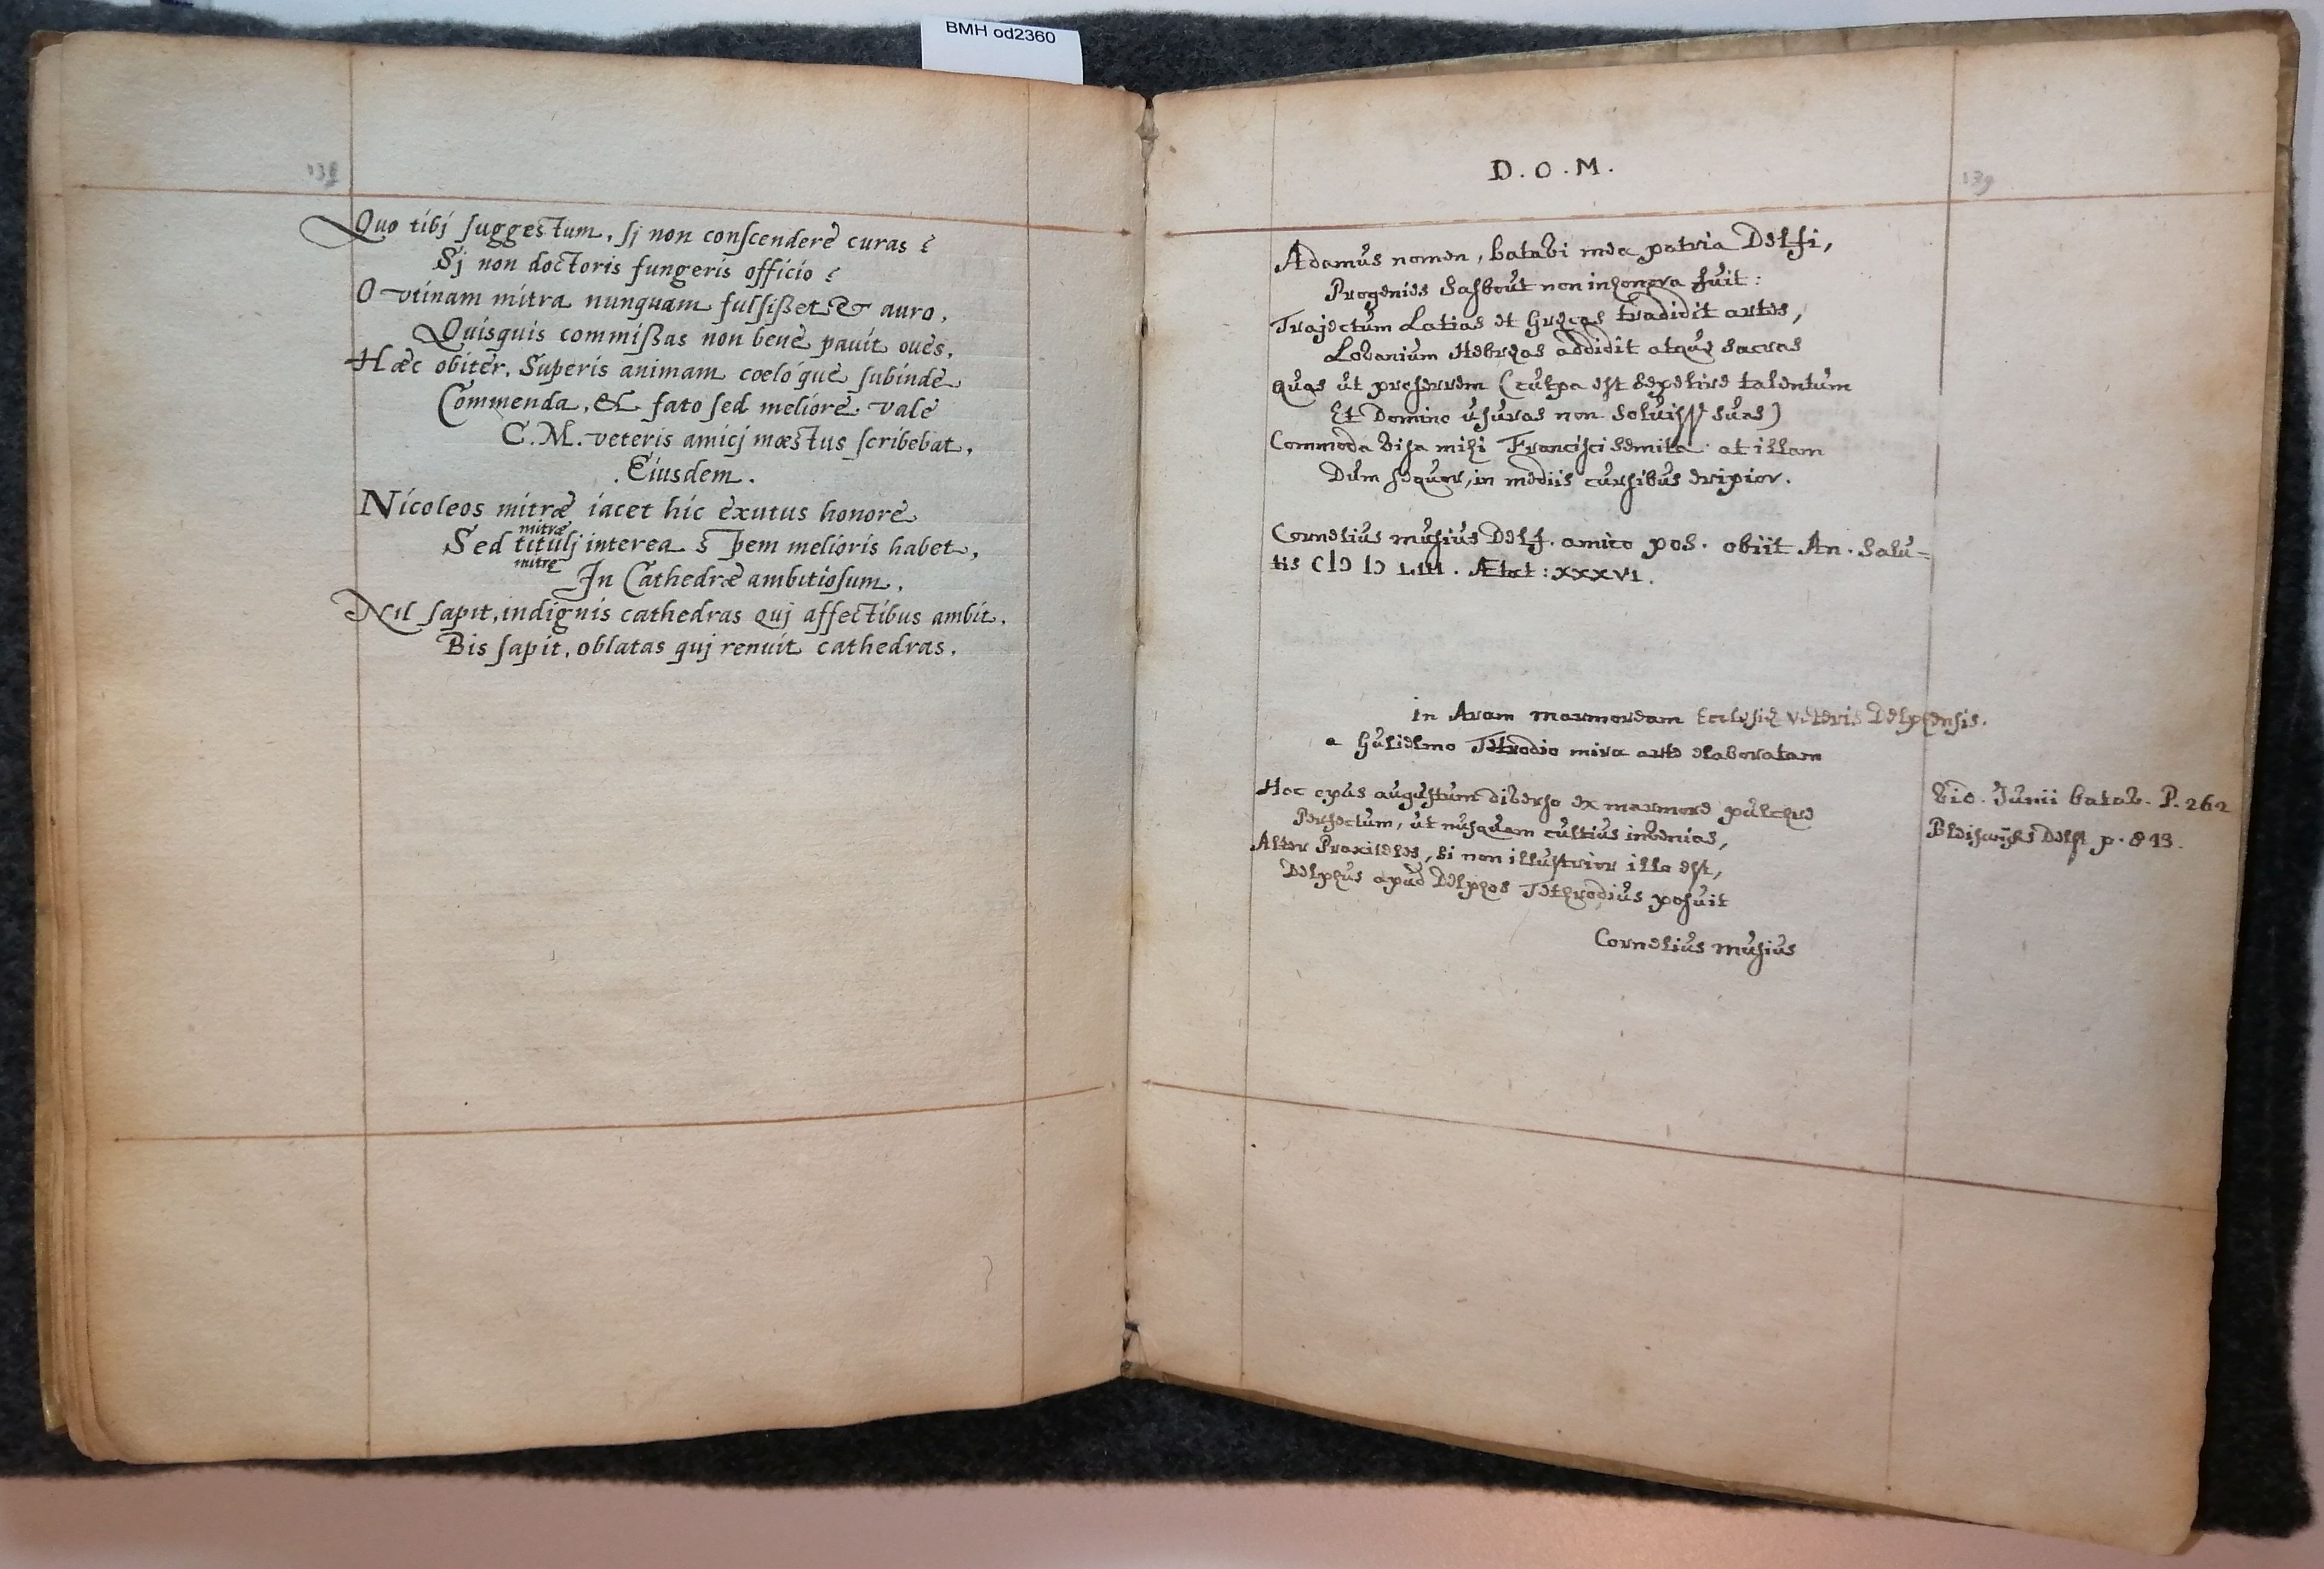 BMH od2360
138
Quo tibj suggestum, sj non conscendere curas?
Sj non doctoris fungeris officio?
O vtinam mitra nunquam fulsißet & auro,
Quisquis commißas non bene pauit oues.
Hæc obiter, Superis animam coeloque subinde
Commenda, & fato sed meliore vale
C. M. veteris amicj mœstus scribebat.
. Eiusdem.
Nicoleos mitræ iacet hic exutus honore
mitræ
Sed titulj interea spem melioris habet.
mitrę
In Cathedræ ambitiosum.
Nil sapit, indignis cathedras quj affectibus ambit.
Bis sapit, oblatas quj renuit cathedras.
D. O. M.
139
Adamus nomen, batavi mea patria Delfi,
Progenies Sasbout non inhonora fuit:
Trajectum Latias et Gręcas tradidit artes,
Lovanium Hebręas addidit atque sacras
Quas ut proferrem (culpa est sepelire talentum
Et Domino usuras non soluisse suas)
Commoda visa mihi Francisci semita: at illam
Dum sequor, in mediis cursibus eripior.
Cornelius musius Delf. amico pos. obiit An. Salu=
tis CIↃ IↃ LIII. Ætat: XXXVI.
in Aram marmoream Ecclesię veteris Delphensis.
a Gulielmo Tetrodio mira arte elaboratam
Hoc opus augustum diverso ex marmore pulchre
Perfectum, ut nusquam cultius invenias,
Alter Praxiteles, si non illustrior illo est,
Delphus apud Delphos Tethrodius posuit
Cornelius musius
Vid. Junii batav. P. 262
Bleiswijks Delft p. 843.